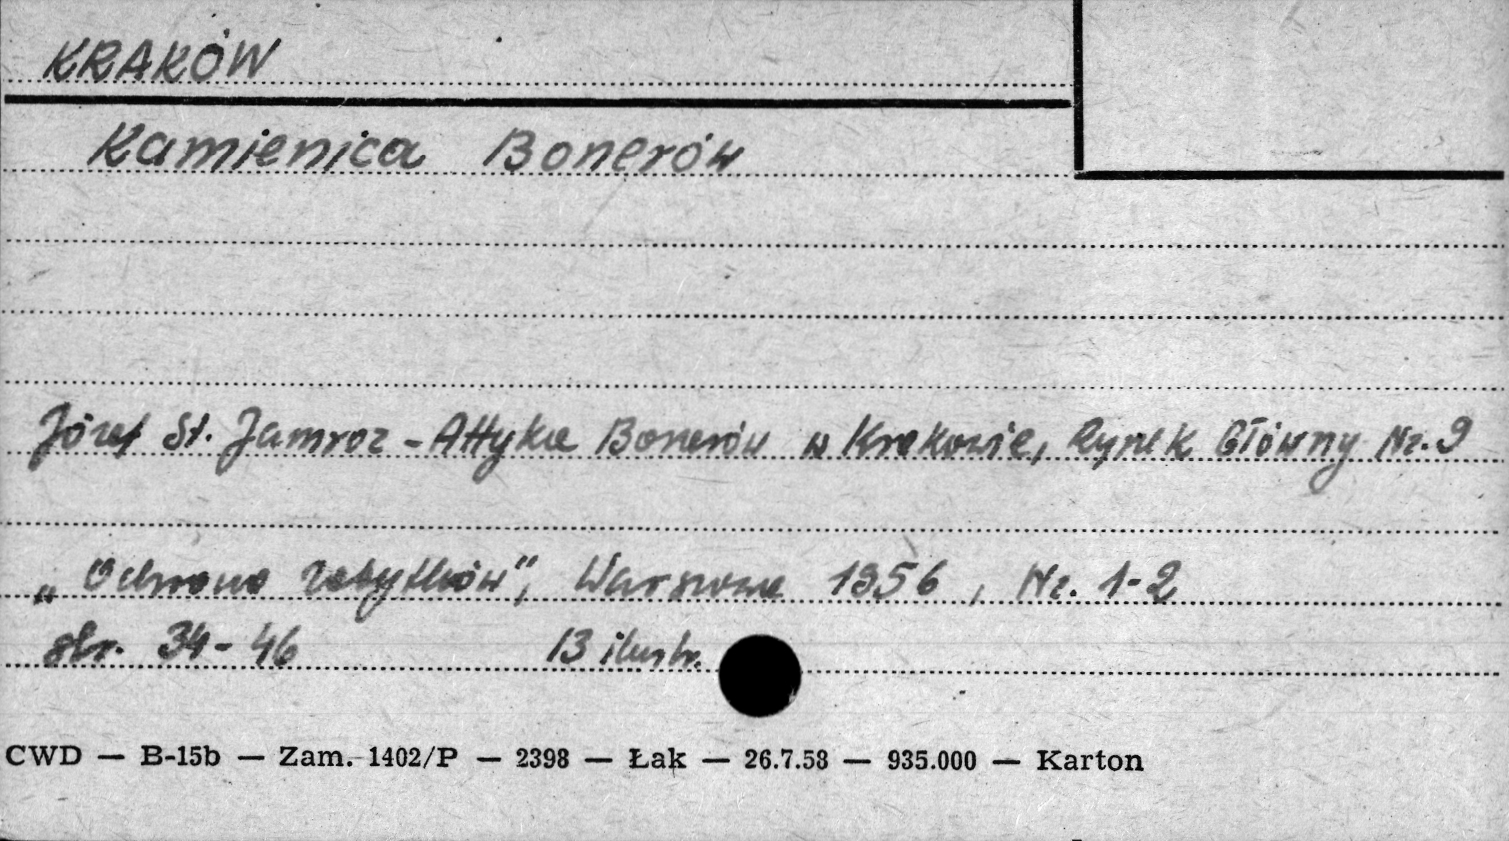 KRAKÓW
Kamienica Bonerów
Józef St. Jamroz - Attyka Bonerów w Krakowie, Rynek Główny Nr. 9
„Ochrona Zabytków", Warszawa 1956, Nr. 1-2
str. 34-46 13 ilustr.
CWD — B-15b — Zam. 1402/P — 2398 — Łak — 26.7.58 — 935.000 — Karton